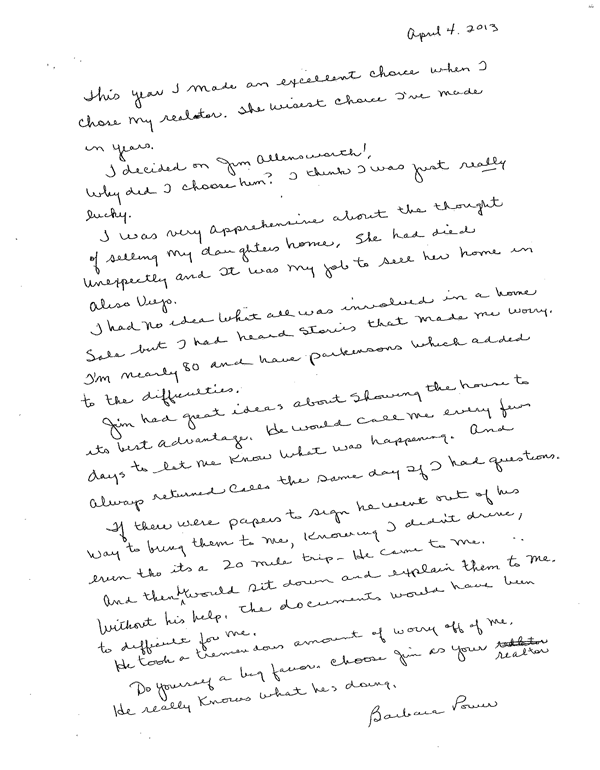 April 4. 2013
This year I made an excellent choice when I
chose my realotor. The wisest choice I've made
in years.
I decided on Jim Allensworth!
Why did I choose him? I think I was just really
lucky.
I was very apprehensive about the thought
of selling my daughters home, She had died
unexpectly and It was my job to sell her home in
Aliso Viejo.
I had no idea what all was involved in a home
Sale but I had heard stories that made me worry.
I'm nearly 80 and have parkensons which added
to the difficulties.
Jim had great ideas about showing the house to
its best advantage. He would call me every few
days to let me know what was happening. And
always returned calls the same day If I had questions.
If there were papers to sign he went out of his
way to bring them to me, knowing I didn't drive,
even tho its a 20 mile trip - He came to me.
And then he would sit down and explain them to me.
Without his help, the documents would have been
to difficult for me.
He took a tremendous amount of worry off of me.
Do yourself a big favor. Choose Jim as your realtor
He really knows what hes doing.
Barbara Power